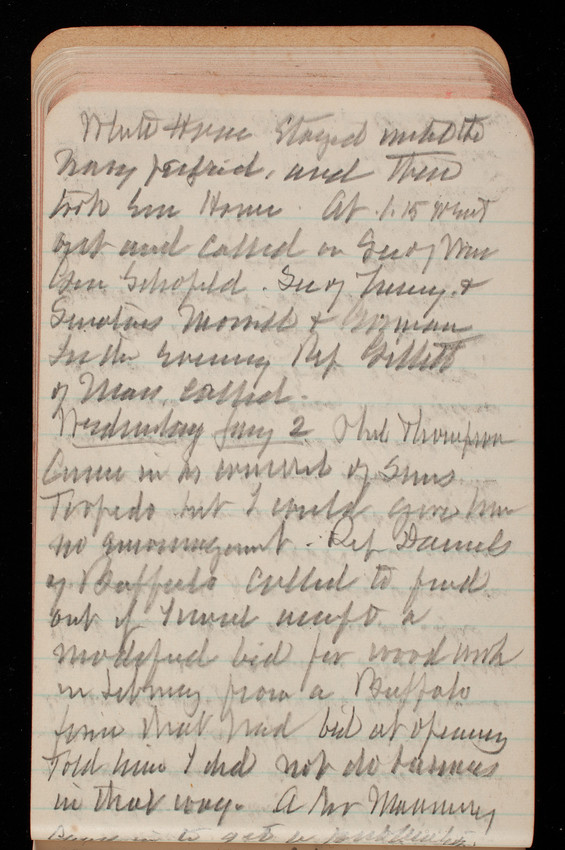 White House Stayed until the
Navy passed, and then
took Em Home. At 1.15 went
out and called on Sec of War
Gen Schofield. Sec of Treasy. &
Senators Morrill & Gorman
In the Evening Rep Gillett
of Mass. called.
Wednesday Jany 2 Phil Thompson
Came in in interest of Sims
Torpedo but I could give him
no encouragement. Rep Daniels
of Buffalo called to find
out if I would accept a
modified bid for wood work
in Library from a Buffalo
firm that had bid at opening
Told him I did not do business
in that way. A Mr Manning
in to get a